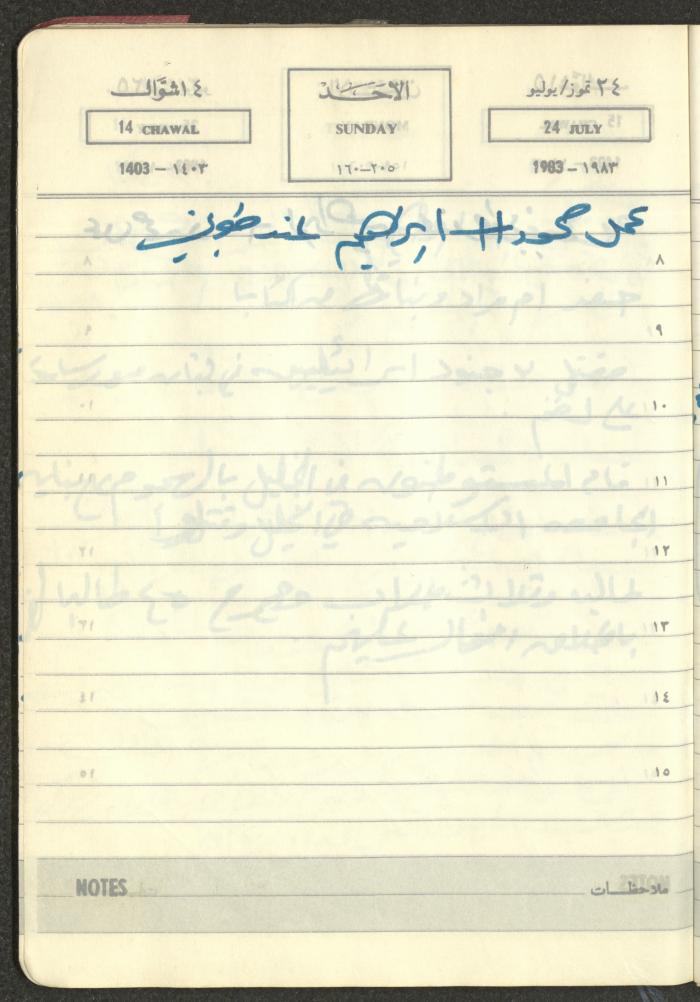 ٢٤ تموز/يوليو الأحد ١٤ شوّال
24 JULY SUNDAY 14 CHAWAL
1983 – ١٩٨٣ ٢٠٥–١٦٠ 1403 – ١٤٠٣
عمل محمود + ابراهيم عند طوبي
٨
٩
١٠
١١
١٢
١٣
١٤
١٥
ملاحظات NOTES